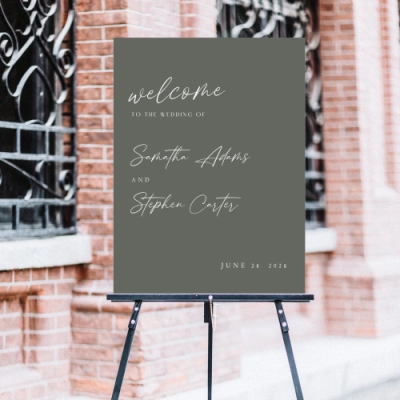 welcome
TO THE WEDDING OF
Samatha Adams
AND
Stephen Carter
JUNE 24 2026